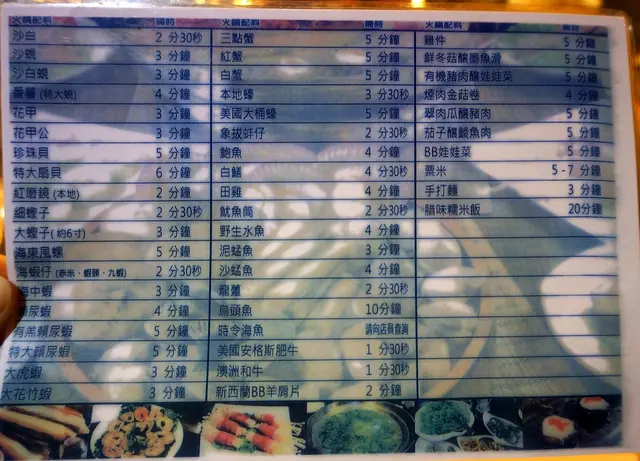 火鍋配料 需時 火鍋配料 需時 火鍋配料 需時
沙白 2 分30秒 三點蟹 5 分鐘 雞件 5 分鐘
沙蜆 3 分鐘 紅蟹 5 分鐘 鮮冬菇釀墨魚滑 5 分鐘
沙白蜆 3 分鐘 白蟹 5 分鐘 有機豬肉釀娃娃菜 5 分鐘
(特大蜆) 4 分鐘 本地蠔 3 分30秒 煙肉金菇卷 4 分鐘
花甲 3 分鐘 美國大桶蠔 5 分30秒 翠肉瓜釀豬肉 5 分鐘
花甲公 3 分鐘 象拔蚌仔 2 分30秒 茄子釀鯪魚肉 5 分鐘
珍珠貝 5 分鐘 鮑魚 4 分鐘 BB娃娃菜 5 分鐘
特大扇貝 6 分鐘 白鱔 4 分30秒 粟米 5 - 7 分鐘
紅磨鏡 (本地) 2 分鐘 田雞 4 分鐘 手打麵 3 分鐘
細蟶子 2 分30秒 魷魚筒 2 分30秒 腊味糯米飯 20分鐘
大蟶子 (約6寸) 3 分鐘 野生水魚 4 分鐘
海東風螺 5 分鐘 泥鯭魚 3 分鐘
海蝦仔 (赤米、蝦頭、九蝦) 2 分30秒 沙鯭魚 4 分鐘
中蝦 3 分鐘 龍躉 2 分30秒
尿蝦 4 分鐘 烏頭魚 10分鐘
有羔賴尿蝦 5 分鐘 時令海魚 請向店員查詢
特大賴尿蝦 5 分鐘 美國安格斯肥牛 1 分30秒
大虎蝦 3 分鐘 澳洲和牛 1 分30秒
大花竹蝦 3 分鐘 新西蘭BB羊肩片 2 分鐘